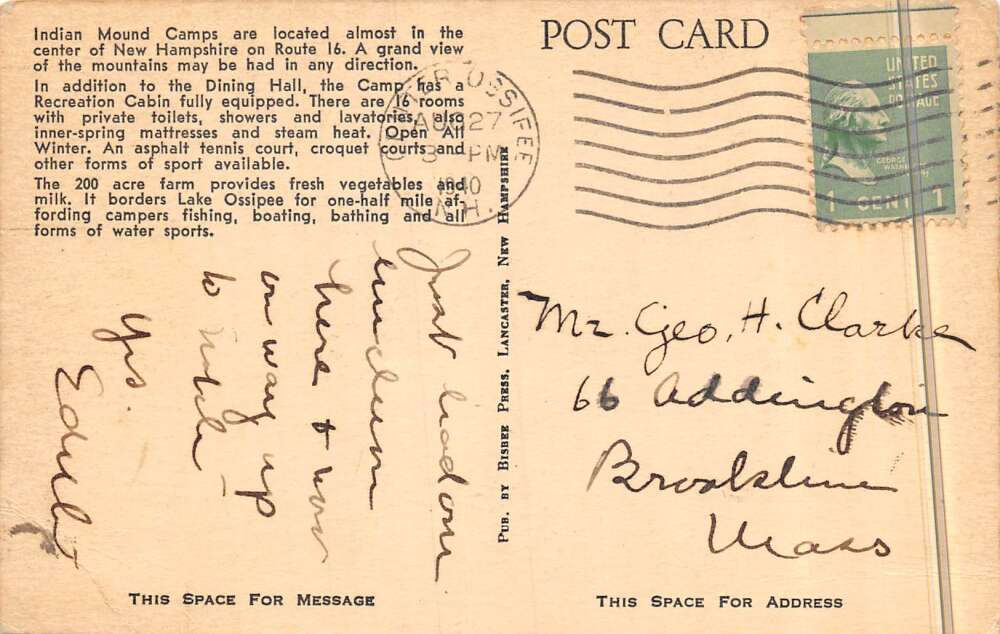 Indian Mound Camps are located almost in the
center of New Hampshire on Route 16. A grand view
of the mountains may be had in any direction.
In addition to the Dining Hall, the Camp has a
Recreation Cabin fully equipped. There are 16 rooms
with private toilets, showers and lavatories, also
inner-spring mattresses and steam heat. Open All
Winter. An asphalt tennis court, croquet courts and
other forms of sport available.
The 200 acre farm provides fresh vegetables and
milk. It borders Lake Ossipee for one-half mile af-
fording campers fishing, boating, bathing and all
forms of water sports.
Just had our
luncheon
here + now
on way up
to
Yrs.
Edith
THIS SPACE FOR MESSAGE
PUB. BY BISBEE PRESS, LANCASTER, NEW HAMPSHIRE
POST CARD
OSSIPEE
AUG 27
3 - PM
1940
N.H.
UNITED
STATES
POSTAGE
GEORGE
1 CENT 1
Mr. Geo. H. Clarke
66 Addington
Brookline
Mass
THIS SPACE FOR ADDRESS